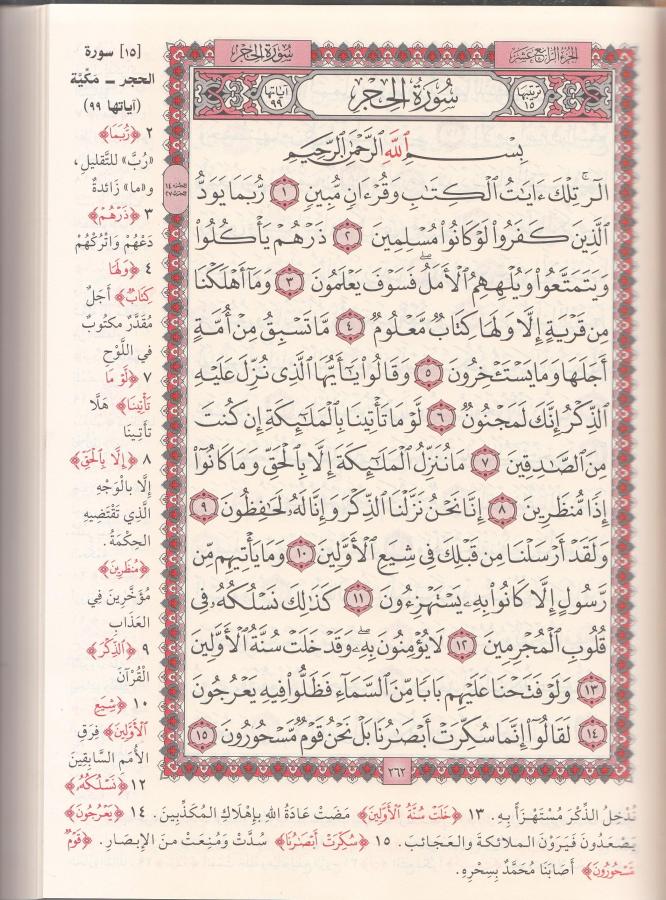 الجزء الرابع عشر
سورة الحجر
ترتيبها ١٥
سُورَةُ الْحِجْرِ
آياتها ٩٩
بِسْمِ ٱللَّهِ ٱلرَّحْمَٰنِ ٱلرَّحِيمِ
الٓرۚ تِلْكَ ءَايَٰتُ ٱلْكِتَٰبِ وَقُرْءَانٍ مُّبِينٍ ١ رُّبَمَا يَوَدُّ
ٱلَّذِينَ كَفَرُوا۟ لَوْ كَانُوا۟ مُسْلِمِينَ ٢ ذَرْهُمْ يَأْكُلُوا۟
وَيَتَمَتَّعُوا۟ وَيُلْهِهِمُ ٱلْأَمَلُۖ فَسَوْفَ يَعْلَمُونَ ٣ وَمَآ أَهْلَكْنَا
مِن قَرْيَةٍ إِلَّا وَلَهَا كِتَابٌ مَّعْلُومٌ ٤ مَّا تَسْبِقُ مِنْ أُمَّةٍ
أَجَلَهَا وَمَا يَسْتَـْٔخِرُونَ ٥ وَقَالُوا۟ يَٰٓأَيُّهَا ٱلَّذِى نُزِّلَ عَلَيْهِ
ٱلذِّكْرُ إِنَّكَ لَمَجْنُونٌ ٦ لَّوْ مَا تَأْتِينَا بِٱلْمَلَٰٓئِكَةِ إِن كُنتَ
مِنَ ٱلصَّٰدِقِينَ ٧ مَا نُنَزِّلُ ٱلْمَلَٰٓئِكَةَ إِلَّا بِٱلْحَقِّ وَمَا كَانُوٓا۟
إِذًا مُّنظَرِينَ ٨ إِنَّا نَحْنُ نَزَّلْنَا ٱلذِّكْرَ وَإِنَّا لَهُۥ لَحَٰفِظُونَ ٩
وَلَقَدْ أَرْسَلْنَا مِن قَبْلِكَ فِى شِيَعِ ٱلْأَوَّلِينَ ١٠ وَمَا يَأْتِيهِم مِّن
رَّسُولٍ إِلَّا كَانُوا۟ بِهِۦ يَسْتَهْزِءُونَ ١١ كَذَٰلِكَ نَسْلُكُهُۥ فِى
قُلُوبِ ٱلْمُجْرِمِينَ ١٢ لَا يُؤْمِنُونَ بِهِۦۖ وَقَدْ خَلَتْ سُنَّةُ ٱلْأَوَّلِينَ
١٣ وَلَوْ فَتَحْنَا عَلَيْهِم بَابًا مِّنَ ٱلسَّمَآءِ فَظَلُّوا۟ فِيهِ يَعْرُجُونَ
١٤ لَقَالُوٓا۟ إِنَّمَا سُكِّرَتْ أَبْصَٰرُنَا بَلْ نَحْنُ قَوْمٌ مَّسْحُورُونَ ١٥
٢٦٢
[١٥] سورة
الحجر ــ مَكّيَّة
(آياتها ٩٩)
٢ ﴿رُّبَمَا﴾
«رُبَّ» للتَّقليلِ،
و«ما» زَائدةٌ
٣ ﴿ذَرْهُمْ﴾
دَعْهُمْ وَاتْرُكْهُمْ
٤ ﴿وَلَهَا
كِتَابٌ﴾ أَجَلٌ
مُقَدَّرٌ مكتوبٌ
في اللَّوْحِ
٧ ﴿لَّوْ مَا
تَأْتِينَا﴾ هَلَّا
تَأتِينَا
٨ ﴿إِلَّا بِالْحَقِّ﴾
إِلَّا بالْوَجْهِ
الَّذِي تَقْتَضِيهِ
الحِكْمَةُ.
﴿مُنظَرِينَ﴾
مُؤَخَّرِينَ فِي
العَذَابِ
٩ ﴿ٱلذِّكْرَ﴾
الْقُرْآنَ
١٠ ﴿شِيَعِ
ٱلْأَوَّلِينَ﴾ فِرَقِ
الأُمَمِ السَّابِقِينَ
١٢ ﴿نَسْلُكُهُۥ﴾
نُدْخِلُ الذِّكْرَ مُسْتَهْزَأً بِهِ. ١٣ ﴿خَلَتْ سُنَّةُ ٱلْأَوَّلِينَ﴾ مَضَتْ عَادَةُ اللهِ بِإِهْلَاكِ المُكَذِّبِينَ. ١٤ ﴿يَعْرُجُونَ﴾
يَصْعَدُونَ فَيَرَوْنَ الملائكةَ والعَجَائبَ. ١٥ ﴿سُكِّرَتْ أَبْصَٰرُنَا﴾ سُدَّتْ وَمُنِعَتْ مِنَ الإِبْصَارِ. ﴿قَوْمٌ
مَّسْحُورُونَ﴾ أَصَابَنَا مُحَمَّدٌ بِسِحْرِهِ.